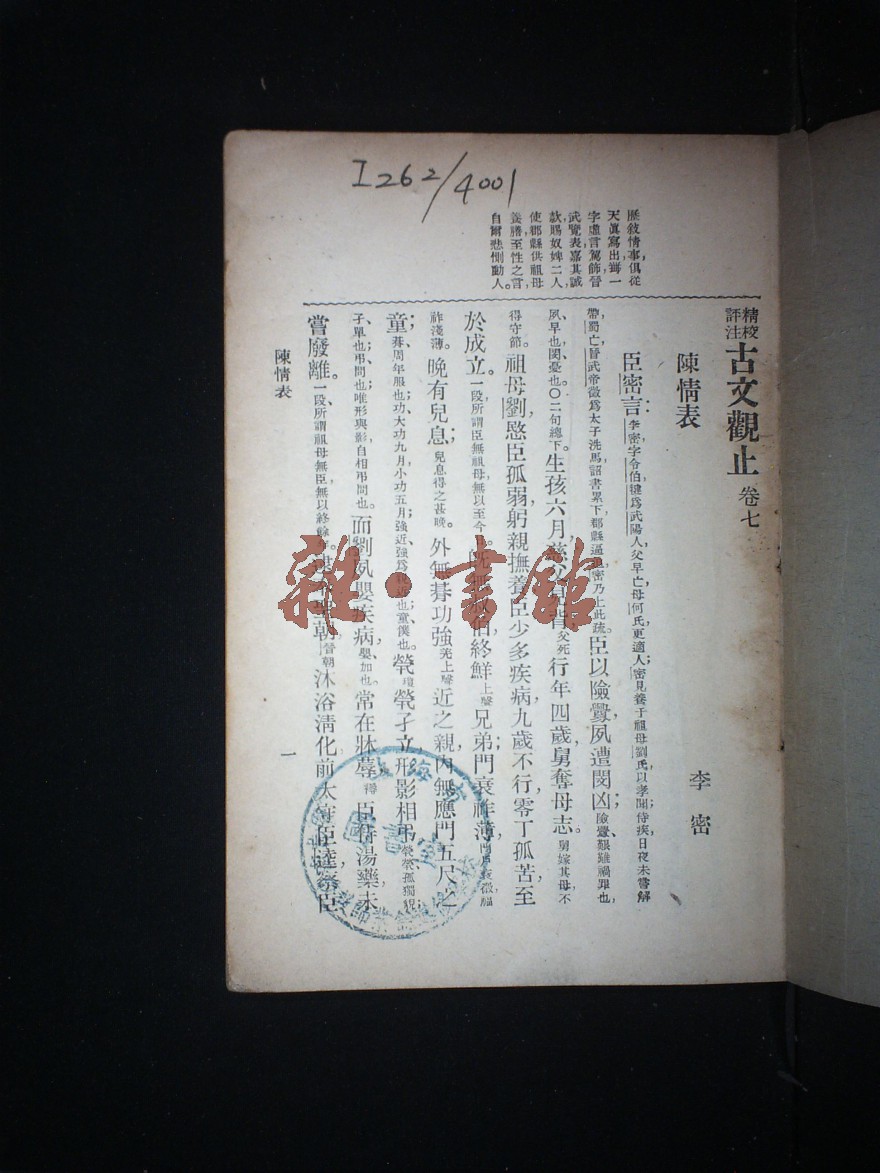 I262/4001
歷敘情事俱從
天眞寫出無一
字虛言駕飾晉
武覽表嘉其誠
款賜奴婢二人
使郡縣供祖母
養膳至性之言
自爾悲惻動人。
精校評注古文觀止 卷七
陳情表 李密
臣密言：李密字令伯犍爲武陽人父早亡母何氏更適人；密見養于祖母劉氏以孝聞侍疾日夜未嘗解
帶，蜀亡晉武帝徵爲太子洗馬詔書累下郡縣逼，密乃上此疏。臣以險釁，夙遭閔凶；險釁艱難禍罪也
夙、早也閔憂也。〇二句總下。生孩六月慈父 父死 行年四歲，舅奪母志。舅嫁其母不
得守節。祖母劉，愍臣孤弱，躬親撫養臣少多疾病，九歲不行，零丁孤苦至
於成立。一段，所謂臣無祖母無以至今日。伯，終鮮上聲兄弟；門衰祚薄，福
祚淺薄。晚有兒息；兒息得之甚晚。外無朞功強羌上聲近之親，內無應門五尺之
童；朞、周年服也；功、大功九月小功五月；強近、強爲親近也；童、僕也。煢瓊煢孑立，形影相弔煢煢孤獨貌；
孑、單也；弔、問也；唯形與影自相弔問也。而劉夙嬰疾病，嬰、加也。常在牀蓐；褥臣侍湯藥，未
嘗廢離。一段、所謂祖母無臣無以終餘年。朝晉朝沐浴清化前太守臣逵，察臣
陳情表
一
雜·書館
圖書室